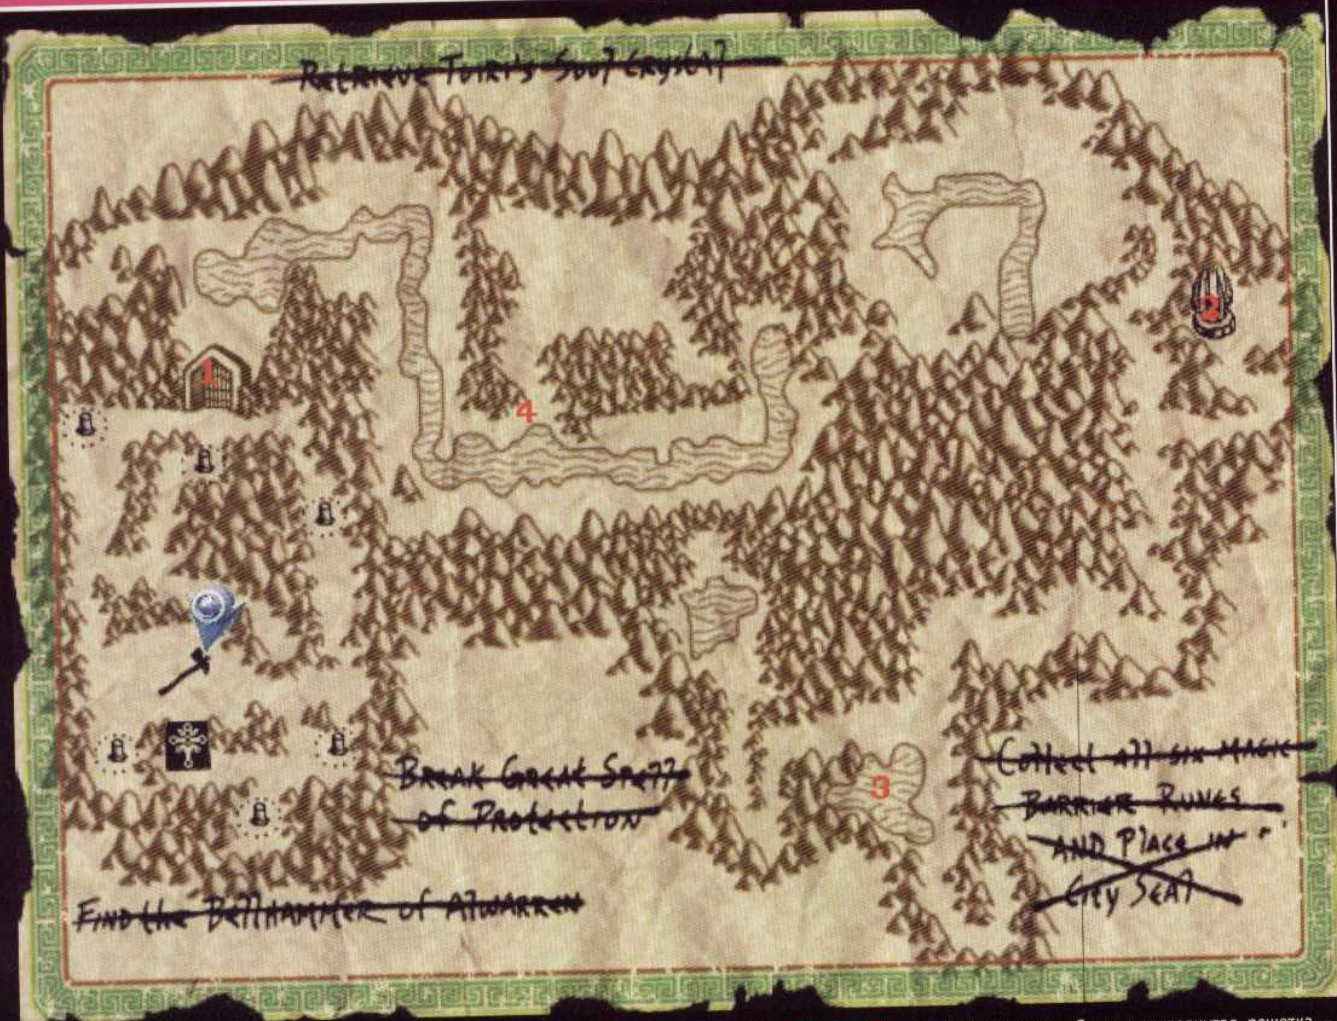 Retrieve Tuiri's Soul Crystal
1
2
4
3
Break Great Spell
of Protection
Collect all six Magic
Barrier Runes
and Place in
City Seal
Find the Bellhammer of Alwarren
решетка